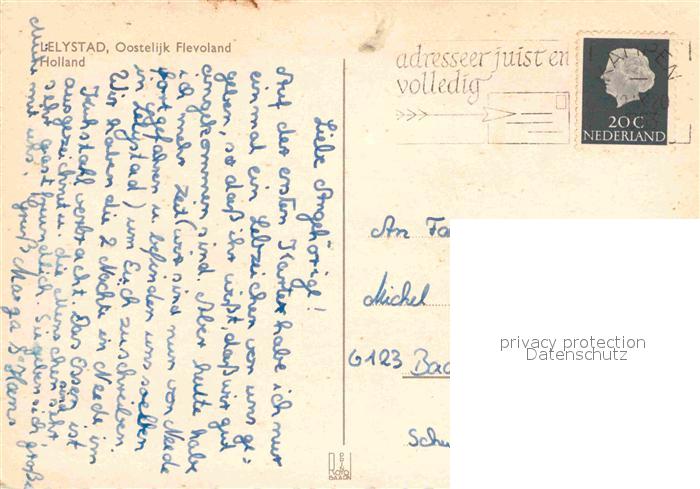 LELYSTAD, Oostelijk Flevoland
Holland
Liebe Angehörige!
Auf der ersten Karte habe ich nur
einmal ein Lebzeichen von uns ge=
geben, so daß ihr wißt, daß wir gut
angekommen sind. Aber heute habe
ich mehr Zeit (wir sind nun von Neede
fortgefahren u. befinden uns soeben
in Lelystad) um Euch zu schreiben.
Wir haben die 2 Nächte in Neede im
verbracht. Das Essen ist
ausgezeichnet u. die Menschen sind
sehr gastfreundlich. Sie geben sich große
Mühe mit uns. Gruß Marga u. Hans
adresseer juist en
volledig
20 C
NEDERLAND
An Fa
Michel
6123 Bad
Schu
privacy protection
Datenschutz
BAARN